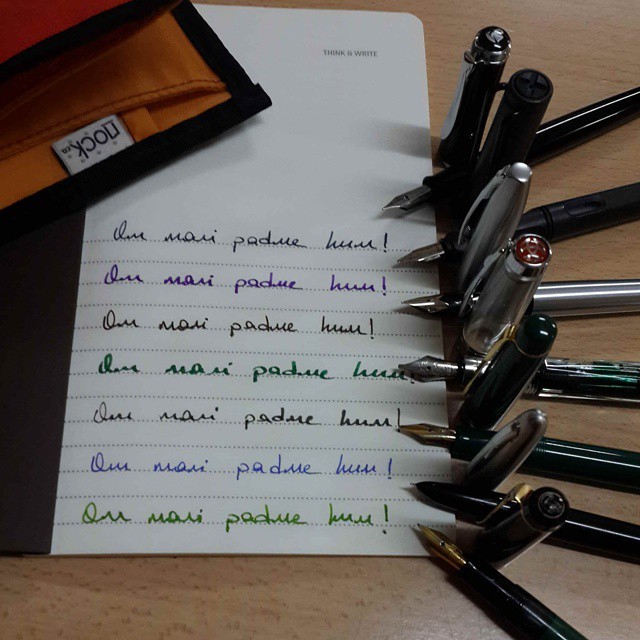 THINK & WRITE
nock co
Om mani padme hum!
Om mani padme hum!
Om mani padme hum!
Om mani padme hum!
Om mani padme hum!
Om mani padme hum!
Om mani padme hum!